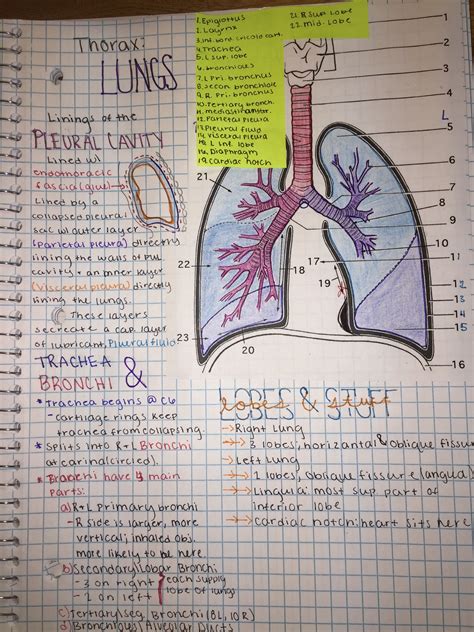 Thorax:
LUNGS
1. Epiglottus
2. Larynx
4. Trachea
5. L sup. lobe
6. bronchioles
7. L Pri. bronchus
8. secon bronchiole
9. R Pri. bronchus
10. Tertiary bronch.
12. Parietal Pleura
13. Pleural fluid
14. Visceral pleura
15. L Inf. lobe
16. Diaphragm
19. cardiac notch
21. R sup. lobe
22. mid. lobe
1
2
3
4
L
5
6
7
8
9
10
11
12
13
14
15
16
17
18
19
20
21
22
23
Linings of the
PLEURAL CAVITY
Lined w/
endothoracic
fascia (glue)
Lined by a
collapsed pleural
sac w/ outer layer
(Parietal pleura) directly
lining the walls of pul.
cavity + an inner layer
(Visceral pleura) directly
lining the lungs.
These layers
secreate a cap. layer
of lubricant, Pleural fluid
TRACHEA &
BRONCHI
* Trachea begins @ C6
- cartilage rings keep
trachea from collapsing.
* Splits into R+L Bronchi
at carina (circled).
* Bronchi have 4 main
parts:
a) R+L primary bronchi
- R side is larger, more
vertical; inhaled obj.
more likely to be here
b) Secondary/Lobar Bronchi
- 3 on right
- 2 on left
each supply
lobe of lungs
c) Tertiary/seg. Bronchi (8L, 10R)
d) Bronchious/Alveolar Ducts
LOBES & STUFF
→ Right Lung
→ 3 lobes, horizantal & oblique fissure
→ Left Lung
→ 2 lobes, oblique fissure
→ Lingula: most sup part of
inferior lobe
→ cardiac notch: heart sits here